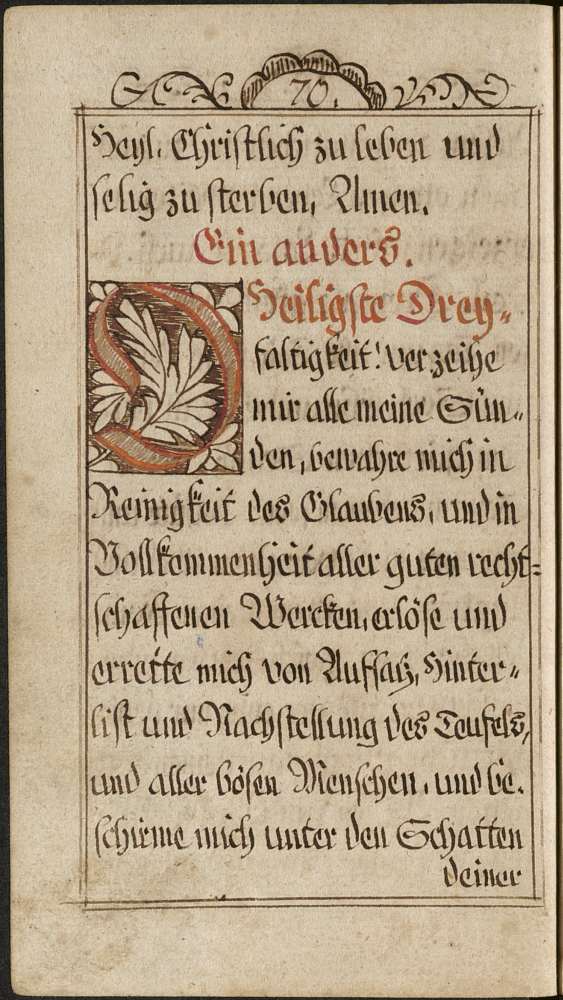 70.
Heyl. Christlich zu leben und
selig zu sterben, Amen.
Ein anders.
O Heiligste Drey„
faltigkeit! verzeihe
mir alle meine Sün„
den, bewahre mich in
Reinigkeit des Glaubens, und in
Vollkommenheit aller guten recht=
schaffenen Wercken, erlöse und
errette mich von Auffsatz, Hinter„
list und Nachstellung des Teufels,
und aller bösen Menschen, und be.
schirme mich unter den Schatten
deiner